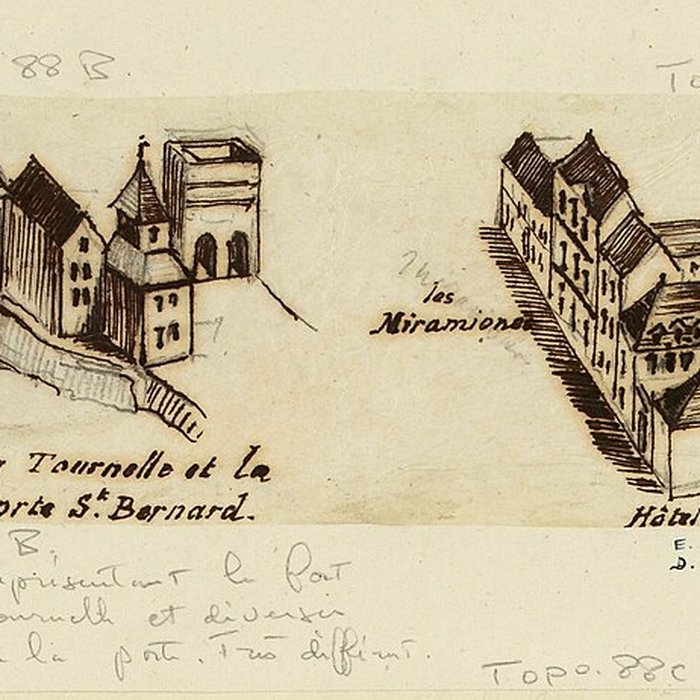 88 B.
les
Miramiones
Tournelle et la
orte St. Bernard.
Hôtel
E.
D.
B.
eprésentant le Port
ournelle et diverses
la porte. Très différent.
Topo. 88 C